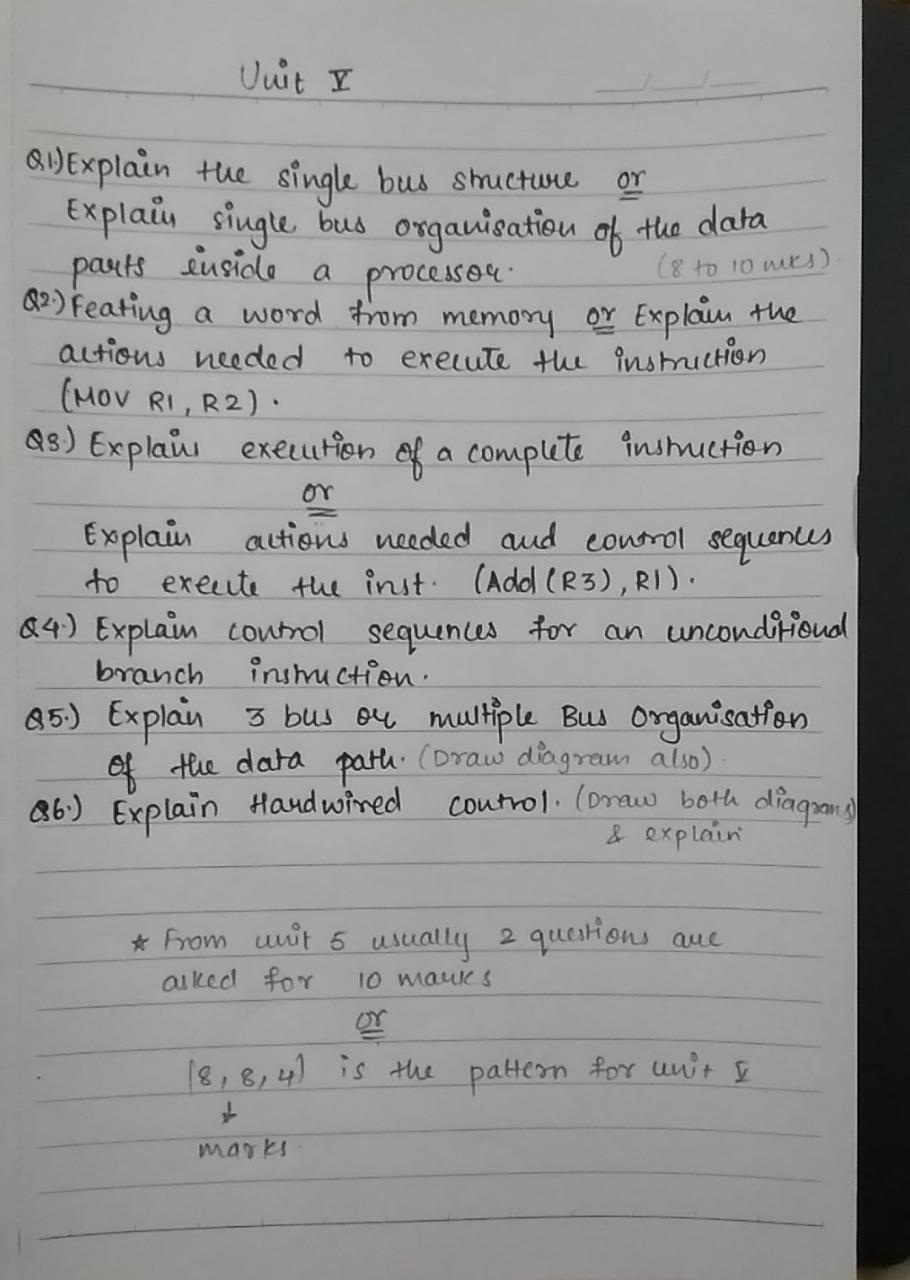 Unit V
Q1) Explain the single bus structure or
Explain single bus organisation of the data
parts inside a processor. (8 to 10 mks).
Q2.) Feating a word from memory or Explain the
actions needed to execute the instruction
(MOV R1, R2).
Q3.) Explain execution of a complete instruction
or
Explain actions needed and control sequences
to exeute the inst. (Add (R3), R1).
Q4.) Explain control sequences for an unconditional
branch instruction.
Q5.) Explain 3 bus or multiple Bus Organisation
of the data path. (Draw diagram also).
Q6.) Explain Hardwired control. (Draw both diagrams)
& explain
* From unit 5 usually 2 questions are
asked for 10 marks
or
(8, 8, 4) is the pattern for unit V
↓
marks.